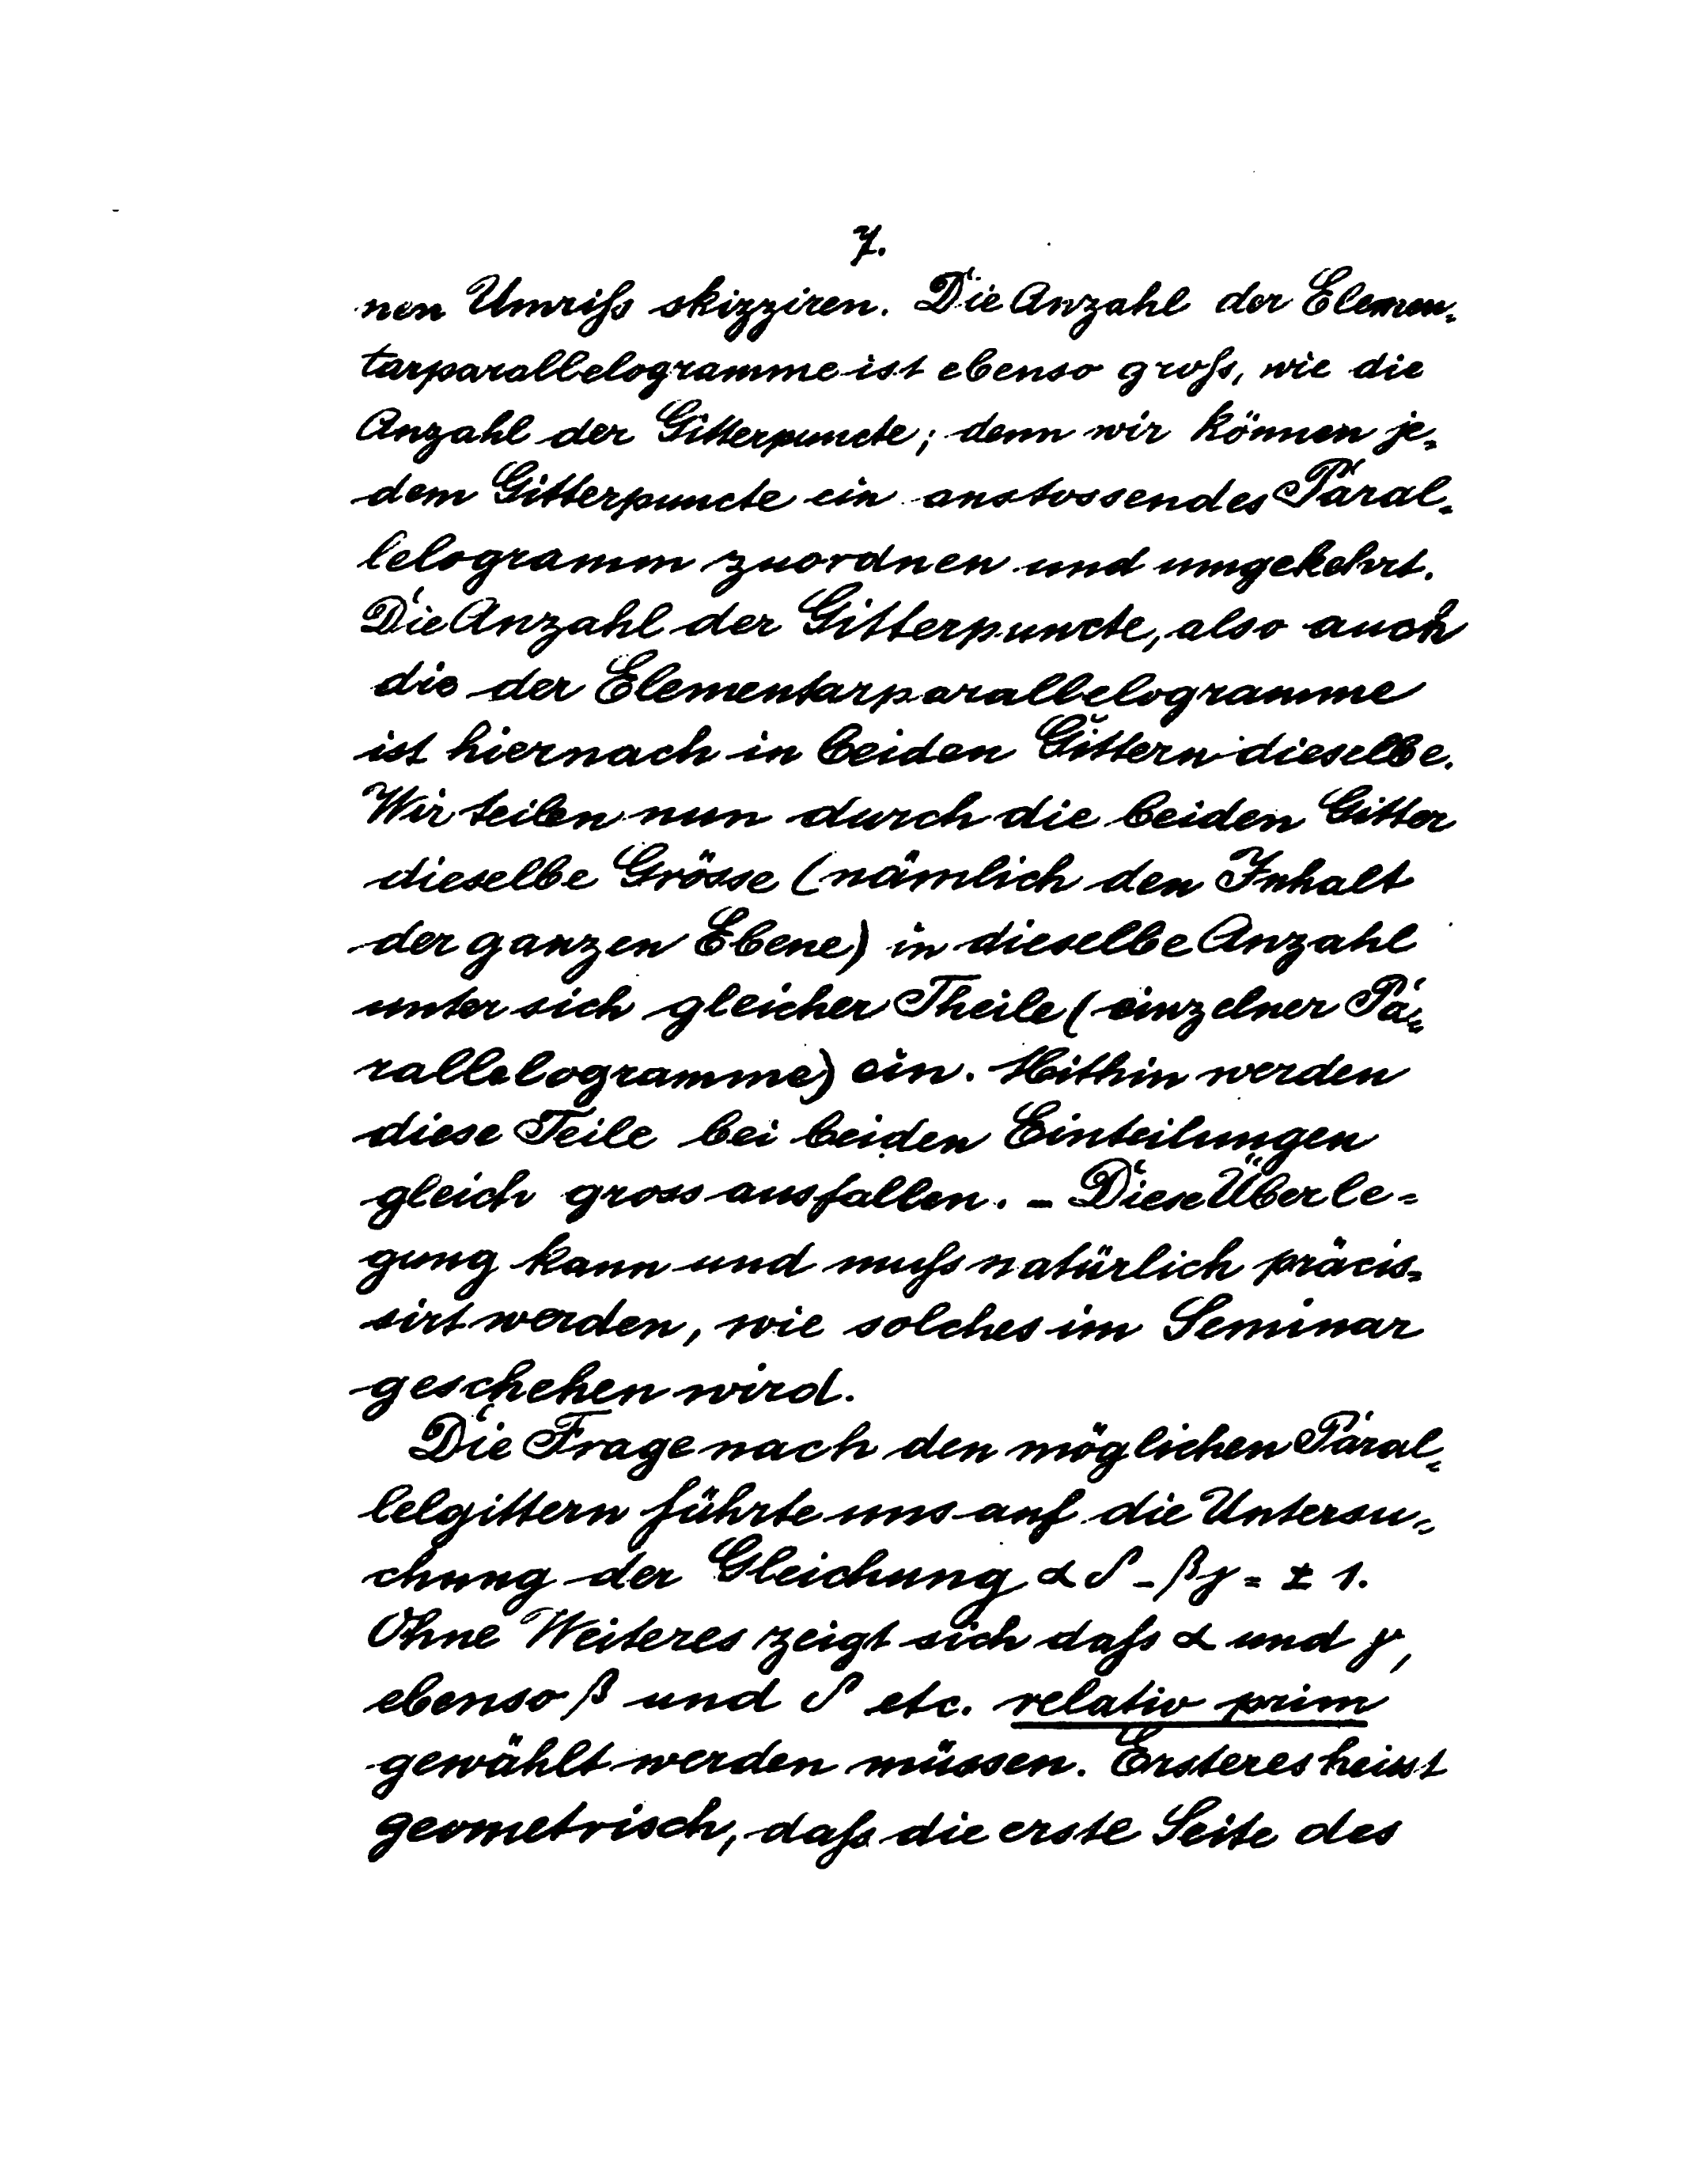 7.
nen Umriß skizziren. Die Anzahl der Elemen-
tarparallelogramme ist ebenso groß, wie die
Anzahl der Gitterpuncte; denn wir können je-
dem Gitterpuncte ein anstossendes Paral-
lelogramm zuordnen und umgekehrt.
Die Anzahl der Gitterpuncte, also auch
die der Elementarparallelogramme
ist hiernach in beiden Gittern dieselbe.
Wir teilen nun durch die beiden Gitter
dieselbe Grösse (nämlich den Inhalt
der ganzen Ebene) in dieselbe Anzahl
unter sich gleicher Theile (einzelner Pa-
rallelogramme) ein. Mithin werden
diese Teile bei beiden Einteilungen
gleich gross ausfallen. – Diese Überle-
gung kann und muß natürlich präcis-
sirt werden, wie solches im Seminar
geschehen wird.
Die Frage nach den möglichen Paral-
lelgittern führte uns auf die Untersu-
chung der Gleichung αδ - βγ = ± 1.
Ohne Weiteres zeigt sich daß α und γ,
ebenso β und δ etc. relativ prim
gewählt werden müssen. Ersteres heisst
geometrisch, daß die erste Seite des